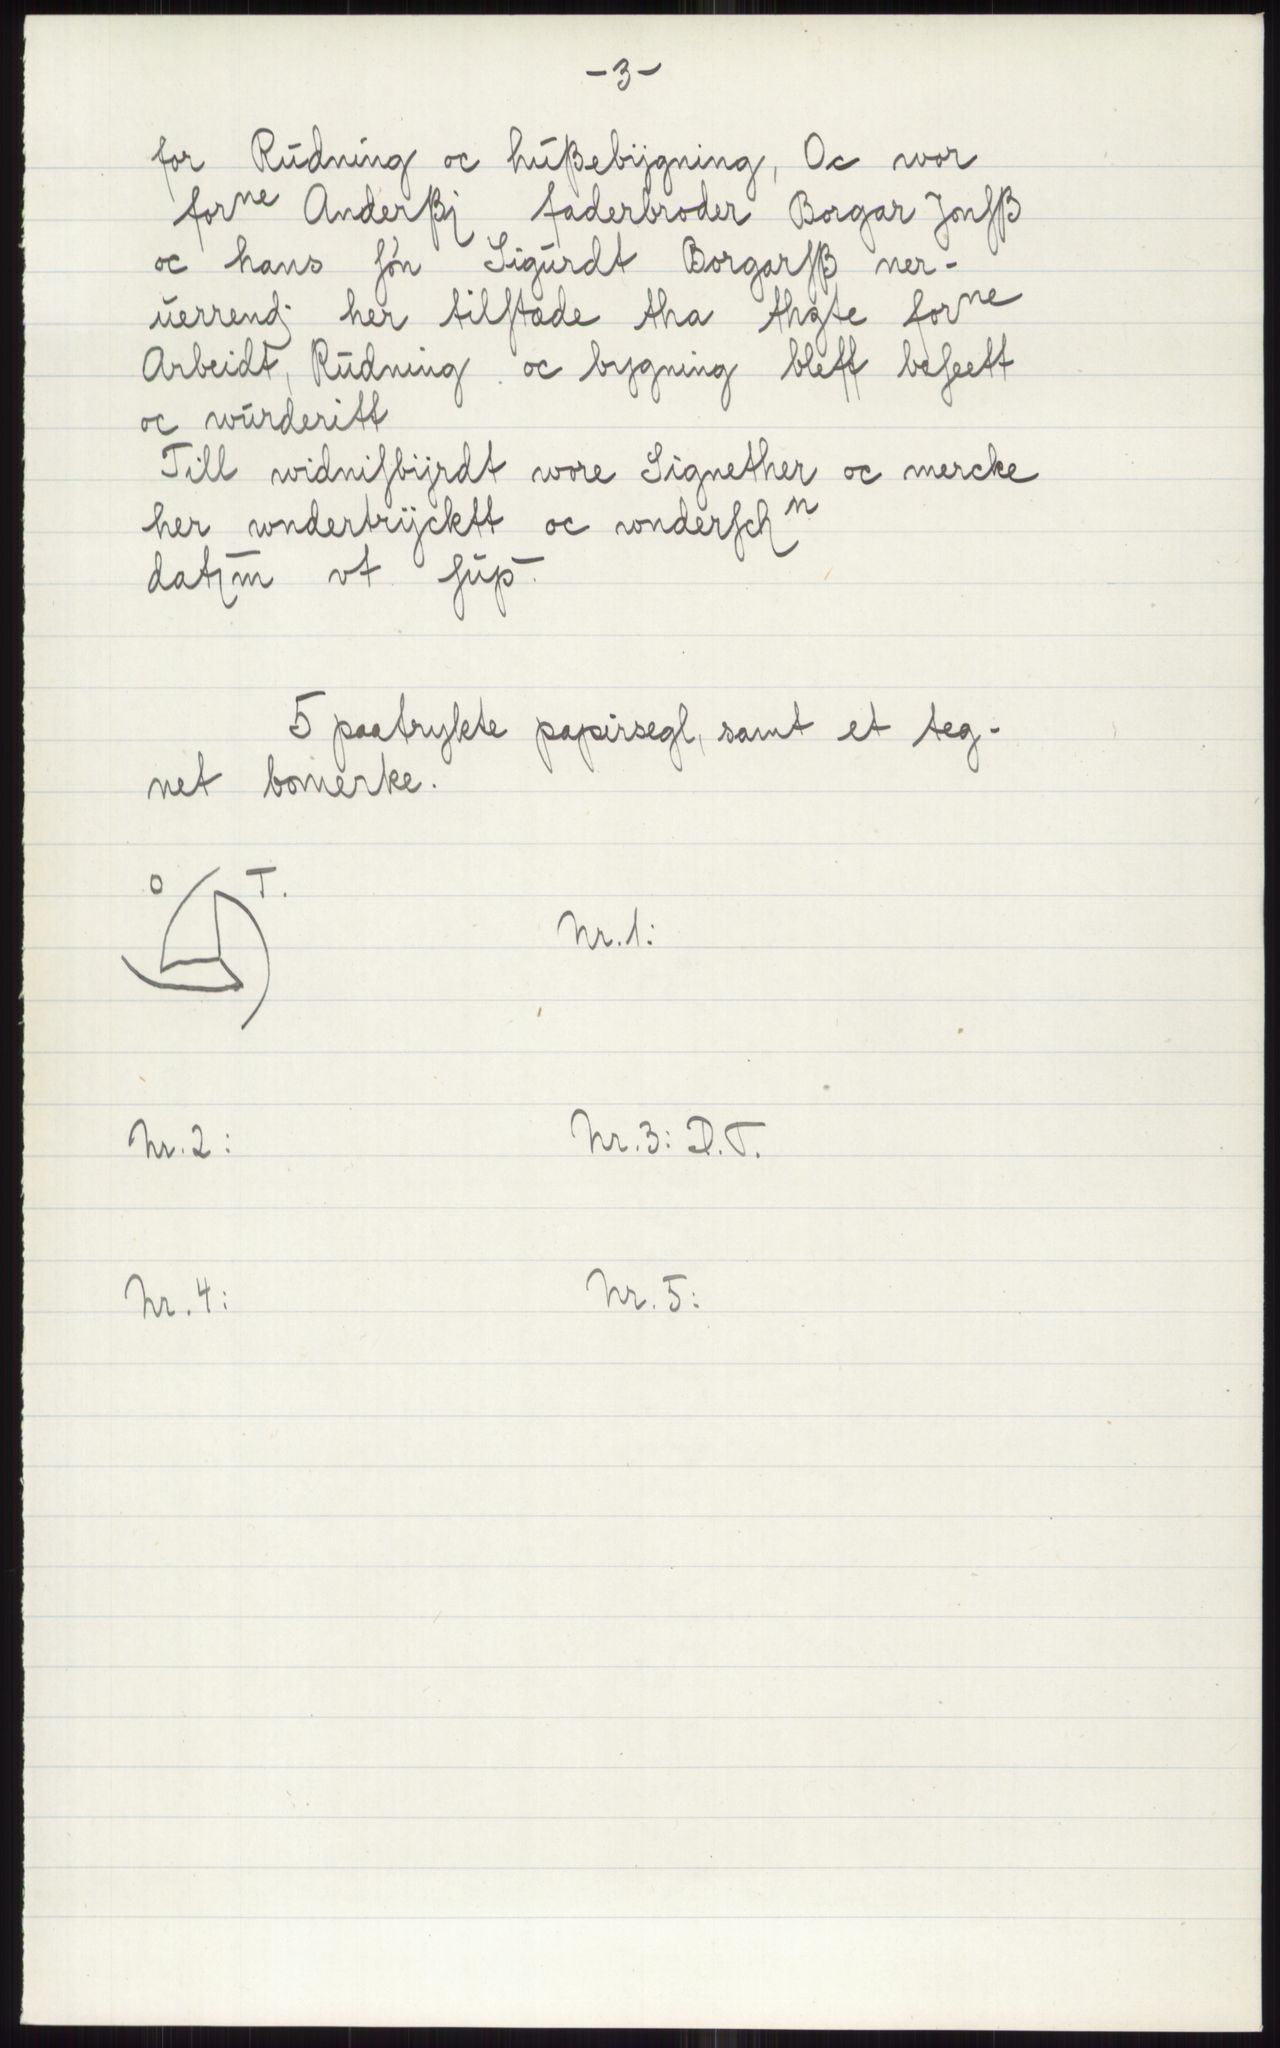 -3-
for Rŭdning oc hŭßebÿgning, Oc wor
forne Anderßj faderbroder Borgar Jonſß
oc hans ſøn Sigŭrdt Borgarſß ner-
ŭerrendj her tilſtæde tha thgte forne
Arbeidt, Rŭdning oc bygning bleff beſeett
oc wŭrderitt
Till widniſbÿrdt wore Signether oc mercke
her wndertrÿcktt oc wnderſchn
datum vt ſŭp.
5 paatrykte papirsegl, samt et teg-
net bomerke.
O T.
Nr. 1:
Nr. 2: Nr. 3: D.T.
Nr. 4: Nr. 5: